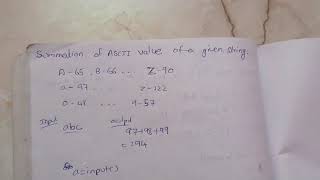 Summation of ASCII value of a given string.
A-65, B-66 ... Z-90
a-97 ... z-122
0-48 ... 9-57
Input output
abc 97+98+99
=294
a=input()